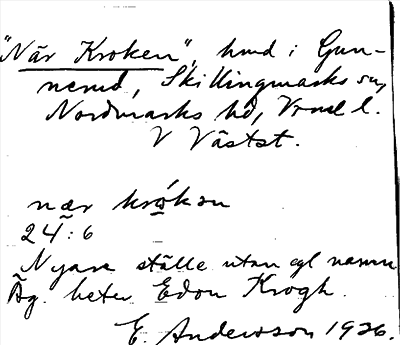 "När Kroken", hmd i Gun-
nerud, Skillingmarks sn,
Nordmarks hd, Vrml l.
V Västst.
nær krókən
24:6
Nyare ställe utan egl namn
Äg. heter Edon Krogh.
E. Andersson 1926.